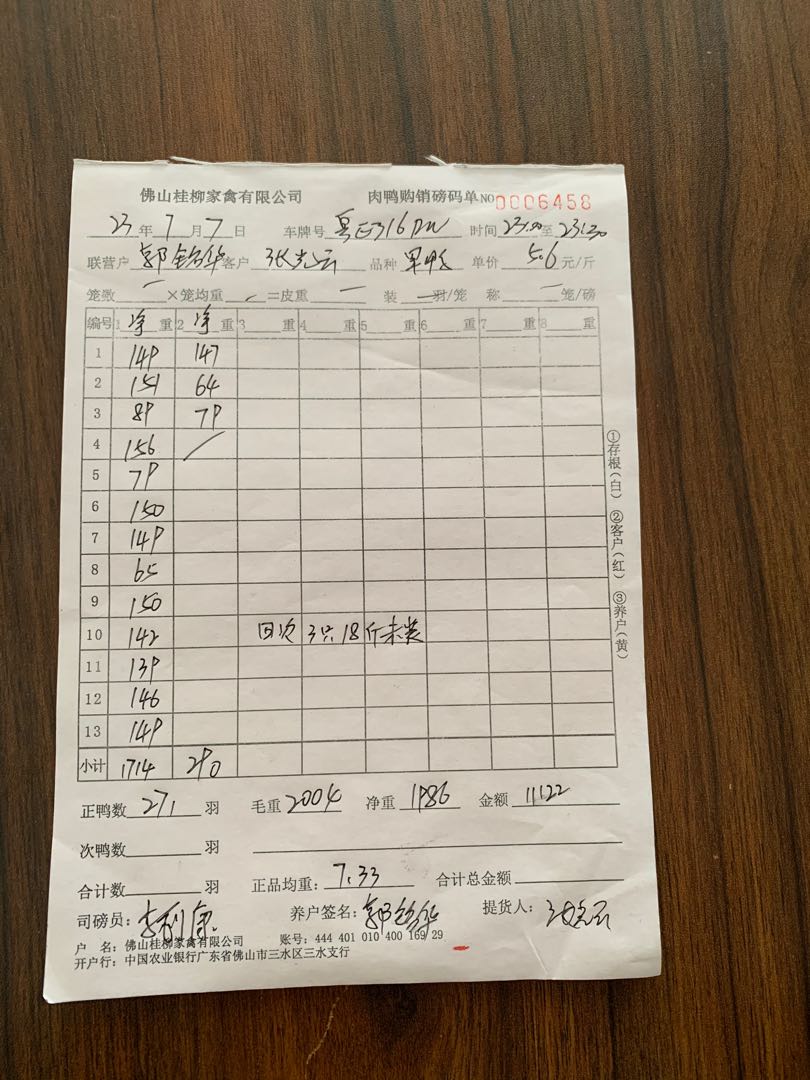 佛山桂柳家禽有限公司 肉鸭购销磅码单 NO 0006458
23 年 7 月 7 日 车牌号 时间 23:00 至 23:30
联营户 郭铭华 客户 张光云 品种 单价 5.6 元/斤
笼数 — ×笼均重 — =皮重 — 装 — 羽/笼 称 — 笼/磅
编号 1 净 重 2 净 重 3 重 4 重 5 重 6 重 7 重 8 重
1 149 147
2 151 64
3 89 79
4 156 /
5 79
6 150
7 149
8 65
9 150
10 142 回次 3只 18斤未装
11 139
12 146
13 149
小计 1714 290
①存根(白) ②客户(红) ③养户(黄)
正鸭数 271 羽 毛重 2004 净重 1986 金额 11122
次鸭数 羽
合计数 羽 正品均重: 7.33 合计总金额
司磅员: 养户签名: 郭铭华 提货人: 张光云
户 名: 佛山桂柳家禽有限公司 账号: 444 401 010 400 169 29
开户行: 中国农业银行广东省佛山市三水区三水支行